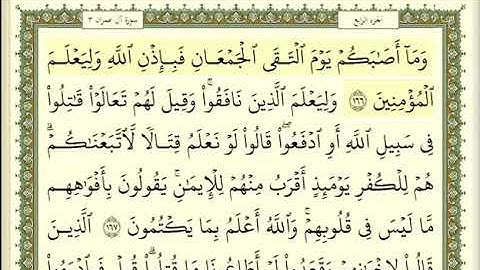 الجزء الرابع سورة آل عمران ٣
وَمَآ أَصَٰبَكُمۡ يَوۡمَ ٱلۡتَقَى ٱلۡجَمۡعَانِ فَبِإِذۡنِ ٱللَّهِ وَلِيَعۡلَمَ
ٱلۡمُؤۡمِنِينَ ١٦٦ وَلِيَعۡلَمَ ٱلَّذِينَ نَافَقُواْۚ وَقِيلَ لَهُمۡ تَعَالَوۡاْ قَٰتِلُواْ
فِي سَبِيلِ ٱللَّهِ أَوِ ٱدۡفَعُواْۖ قَالُواْ لَوۡ نَعۡلَمُ قِتَالٗا لَّٱتَّبَعۡنَٰكُمۡۗ
هُمۡ لِلۡكُفۡرِ يَوۡمَئِذٍ أَقۡرَبُ مِنۡهُمۡ لِلۡإِيمَٰنِۚ يَقُولُونَ بِأَفۡوَٰهِهِم
مَّا لَيۡسَ فِي قُلُوبِهِمۡۚ وَٱللَّهُ أَعۡلَمُ بِمَا يَكۡتُمُونَ ١٦٧ ٱلَّذِينَ
قَالُواْ لِإِخۡوَٰنِهِمۡ وَقَعَدُواْ لَوۡ أَطَاعُونَا مَا قُتِلُواْۗ قُلۡ فَٱدۡرَءُواْ